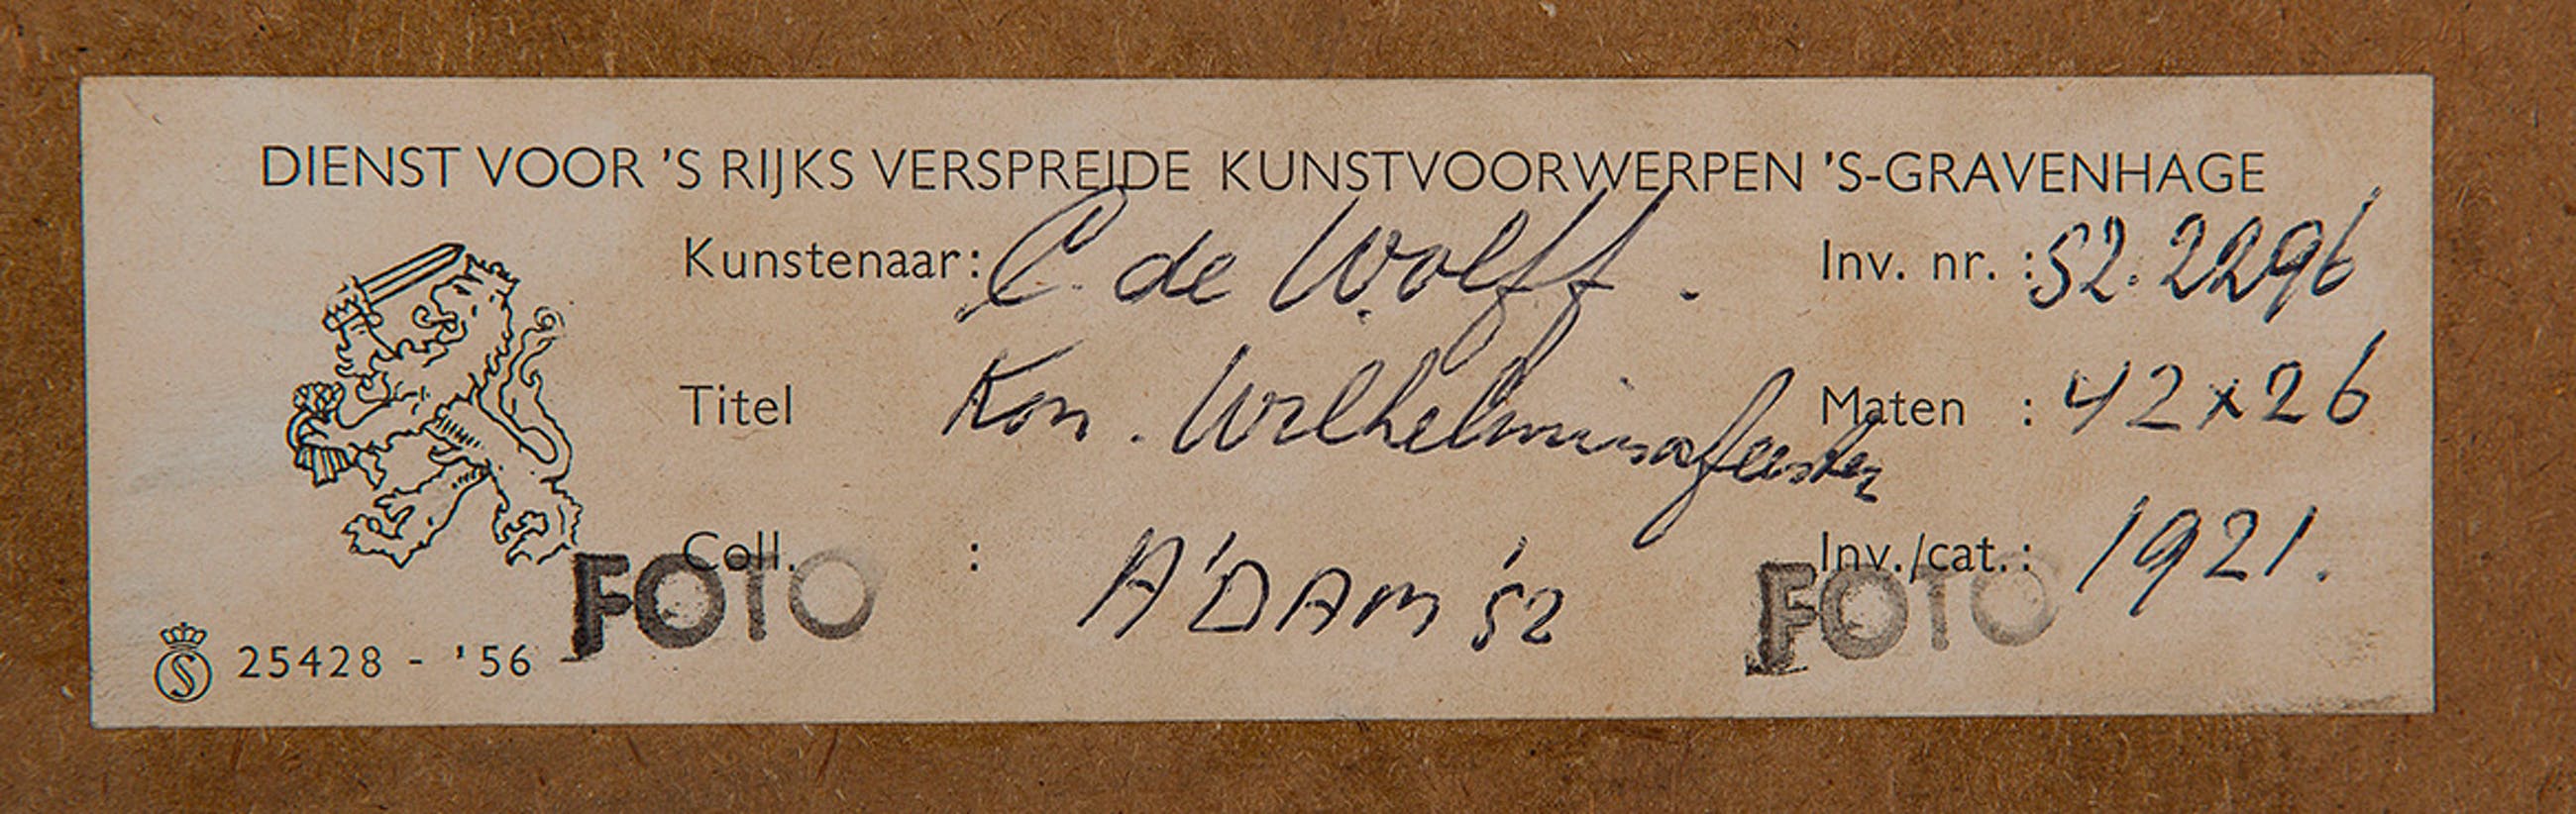 DIENST VOOR 'S RIJKS VERSPREIDE KUNSTVOORWERPEN 'S-GRAVENHAGE
Kunstenaar: C. de Wolff. Inv. nr. : S2.2296
Titel Kon. Wilhelminafeesten Maten : 42x26
Coll. : A'DAM '52 Inv./cat.: 1921.
FOTO FOTO
S 25428 - '56